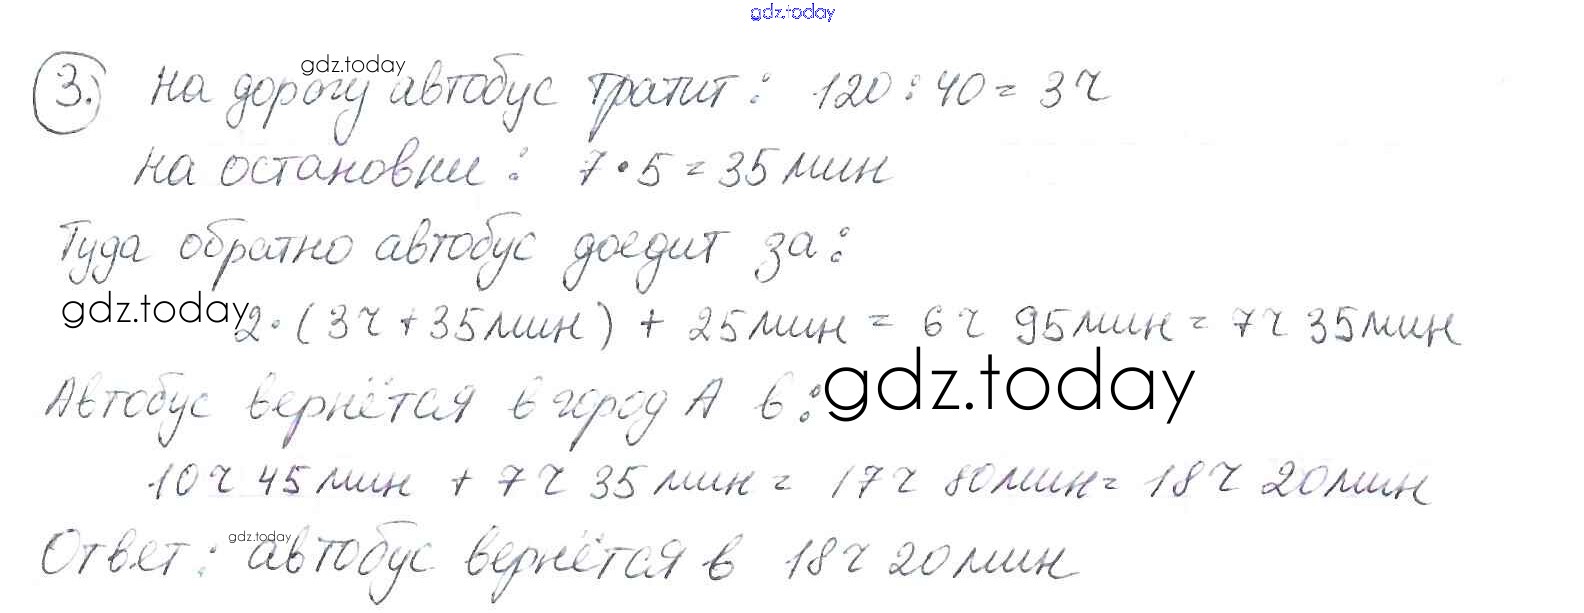 gdz.today
gdz.today
3. На дорогу автобус тратит: 120:40=3ч
на остановки: 7·5=35мин
Туда обратно автобус доедит за:
gdz.today
2·(3ч+35мин)+25мин=6ч 95мин=7ч 35мин
gdz.today
Автобус вернётся в город А в:
10ч 45мин + 7ч 35мин = 17ч 80мин = 18ч 20мин
gdz.today
Ответ: автобус вернётся в 18ч 20мин